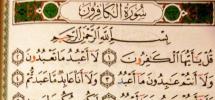 سُورَةُ الكَافِرُونَ
بِسْمِ اللَّهِ الرَّحْمَٰنِ الرَّحِيمِ
قُلْ يَا أَيُّهَا الْكَٰفِرُونَ ١ لَا أَعْبُدُ مَا تَعْبُدُونَ ٢
وَلَا أَنتُمْ عَٰبِدُونَ مَا أَعْبُدُ ٣ وَلَا أَنَا عَابِدٌ مَّا عَبَدتُّمْ ٤